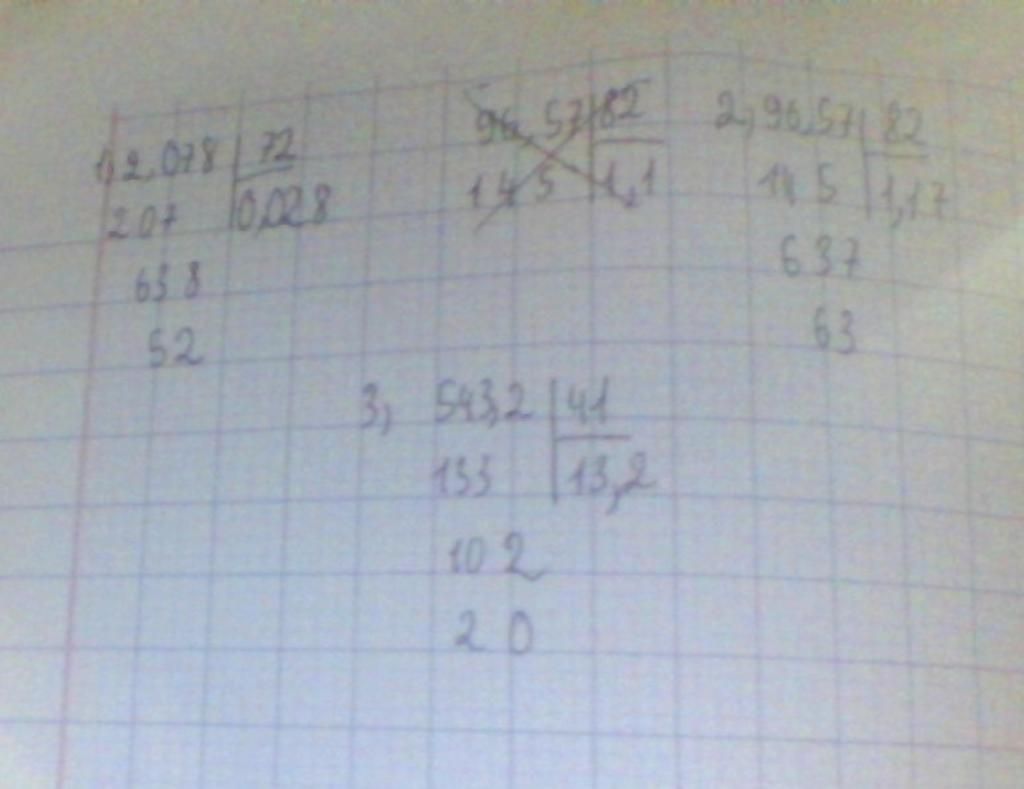 1, 2,078 | 72
207 | 0,028
638
52
96,57 | 82
14 5 | 1,1
2, 96,57 | 82
14 5 | 1,17
637
63
3, 543,2 | 41
133 | 13,2
10 2
2 0